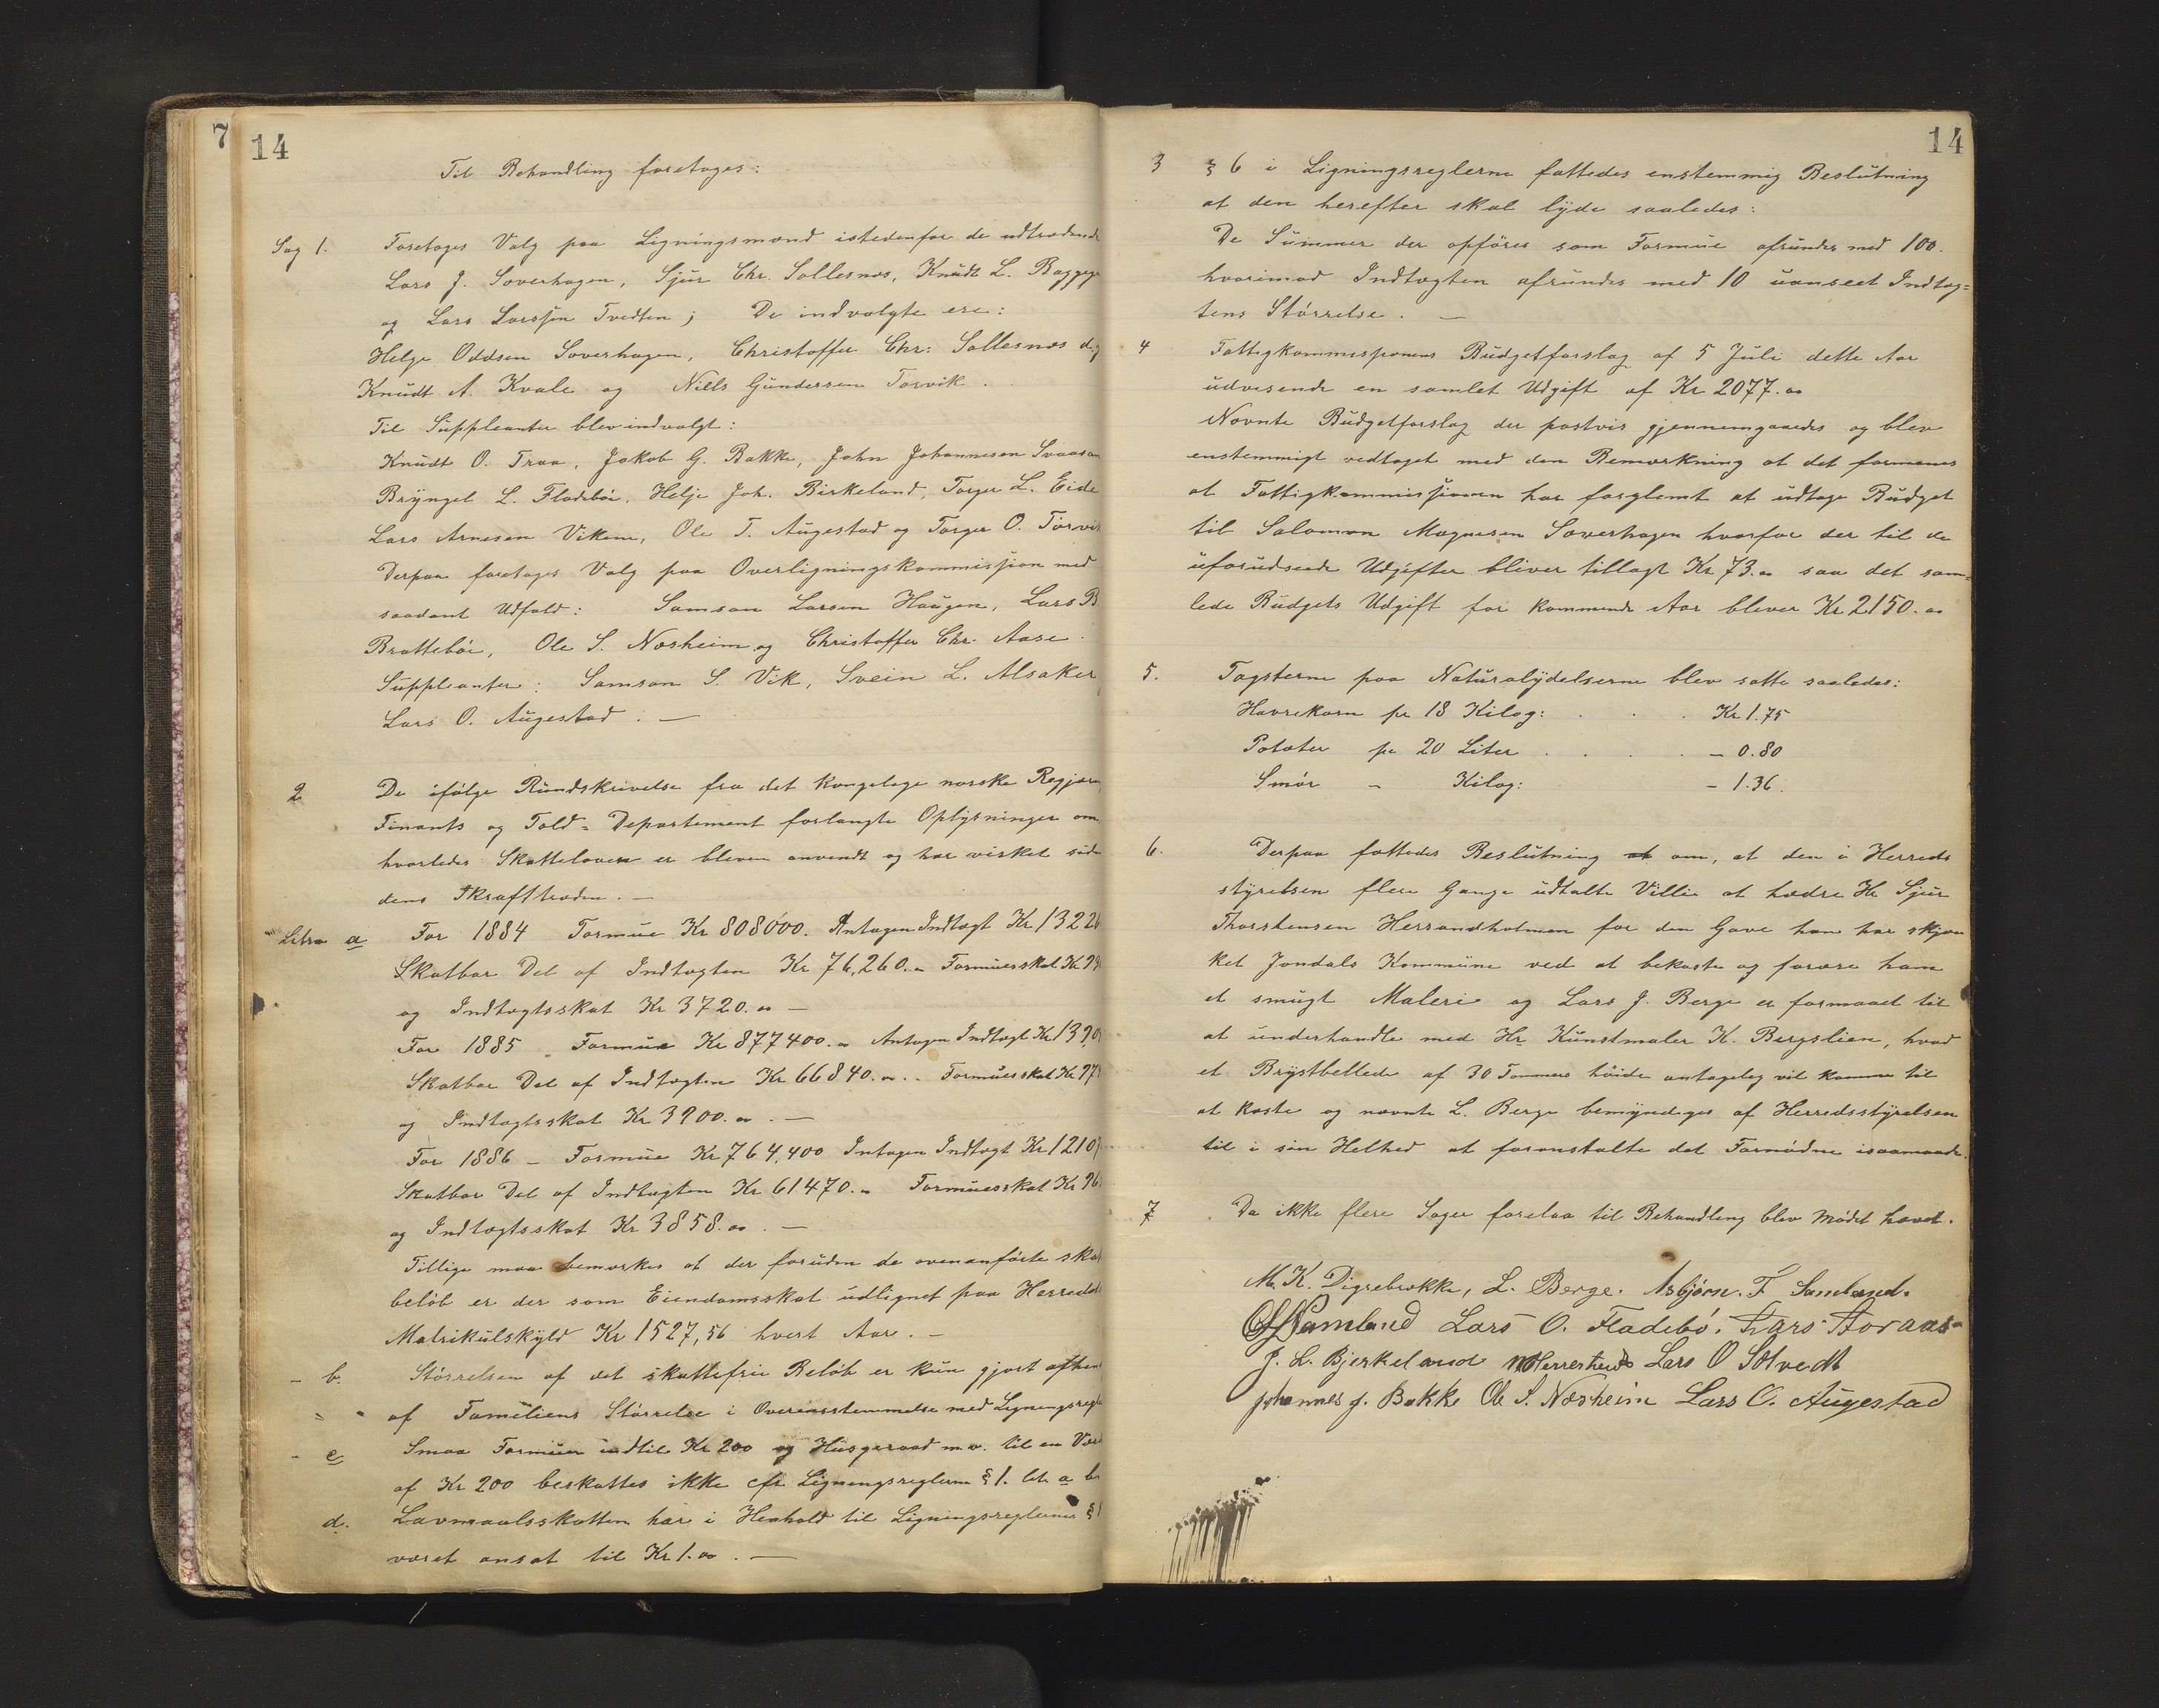 7
14
Til Behandling foretages:
Sag 1. Foretages Valg paa Ligningsmænd istedenfor de udtrædende
Lars J. Soverhagen, Sjur Chr. Sollesnes, Knudt L. Bagge
og Lars Larssen Tvedten; De indvalgte ere:
Helge Oddsen Soverhagen, Christoffer Chr: Sollesnes d.y
Knudt A. Kvale og Niels Gundersen Torvik.
Til Suppleanter blev indvalgt:
Knudt O. Traa, Jakob G. Bakke, John Johannesen Svaasan
Bryngel L. Fladebøe, Helje Joh. Birkeland, Torger L. Eide
Lars Arnesen Vikene, Ole T. Augestad og Torger O. Torvik
Derpaa foretoges Valg paa Overligningskommissjon med
saadant Udfald: Samson Larsen Haugen, Lars B
Brattebøe, Ole S. Næsheim og Christoffer Chr. Aase.
Suppleanter: Samson S. Vik, Svein L. Alsaker
Lars O. Augestad. —
2 De ifølge Rundskrivelse fra det kongelege norske Regjæri
Finants og Told=Departement forlangte Oplysninger om
hvorledes Skatteloven er bleven anvendt og har virket side
dens Ikrafttræden. —
Litra a For 1884 Formue Kr 808000. Antagen Indtægt Kr 1322
Skatbar Del af Indtægten Kr. 76,260.- Formuesskat Kr 9
og Indtægtsskat Kr 3720.oo —
For 1885. Formue Kr 877400.- Antagen Indtægt Kr 1390
Skatbar Del af Indtægten Kr 66840.oo.. Formuesskat Kr 97
og Indtægtsskat Kr 3900.oo. —
For 1886 – Formue Kr 764,400 Intagen Indtægt Kr 1210
Skatbar Del af Indtægten Kr 61470.- Formuesskat Kr 96
og Indtægtsskat Kr 3858.oo. —
Tillige maa bemærkes at der foruden de ovenanførte skat
beløb er der som Eiendomsskat udlignet paa Herredet
Matrikulskyld Kr 1527,56 hvert Aar. –
- b. Størrelsen af det skattefrie Beløb er kun gjort afhen
af Familiens Størrelse i Overensstemmelse med Ligningsregle
- c Smaa Formuer indtil Kr 200 og Husgeraad m.v. til en Værd
af Kr 200 beskattes ikke cfr Ligningsreglerne § 1. litr a b
d. Lavmaalsskatten har i Henhold til Ligningsreglerne §
været ansat til Kr 1.oo. —
14
3 § 6 i Ligningsreglerne fattedes enstemmig Beslutning
at den herefter skal lyde saaledes:
De Summer der opføres som Formue afrundes med 100.
hvorimod Indtægten afrundes med 10 uanseet Indtæg=
tens Størrelse. —
4 Fattigkommissjonens Budgetforslag af 5 Juli dette Aar
udvisende en samlet Udgift af Kr 2077.oo
Nævnte Budgetforslag der postvis gjennemgaaedes og blev
enstemmigt vedtaget med den Bemærkning at det formenes
at Fattigkommissjonen har forglemt at udtage Budget
til Salomon Magnesen Soverhagen hvorfor der til de
uforudseede Udgifter bliver tillagt Kr 73.oo saa det sam=
lede Budgets Udgift for kommende Aar blever Kr 2150.oo
5. Taxterne paa Naturalydelserne blev satte saaledes:
Havrekorn pr 18 Kilog: . . . Kr 1.75
Potæter pr 20 Liter . . . . – 0.80
Smør – Kilog: – 1.36.
6. Derpaa fattedes Beslutning at om, at den i Herreds
styrelsen flere Gange udtalte Villie at hædre Hr Sjur
Thorstensen Herrandholmen for den Gave han har skjæn
ket Jondals Kommune ved at bekoste og forære ham
et smugt Maleri og Lars J. Berge er formaaet til
at underhandle med Hr Kunstmaler K. Bergslien, hvad
et Brystbellede af 30 Tommers høide antagelig vil komme til
at koste og nævnte L. Berge bemyndeges af Herredsstyrelsen
til i sin Helhed at foranstalte det Fornødne isaamaade.
7 Da ikke flere Sager forelaa til Behandling blev Mødet hævet.
M. K. Digrebrekke, L. Berge. Asbjørn. T Samland.
Samland Lars O. Fladebø. Lars Aoraas-
J. L. Bjerkeland Herrestveds Lars O Sætvedt
Johannes J. Bakke Ole S. Næsheim Lars O. Augestad